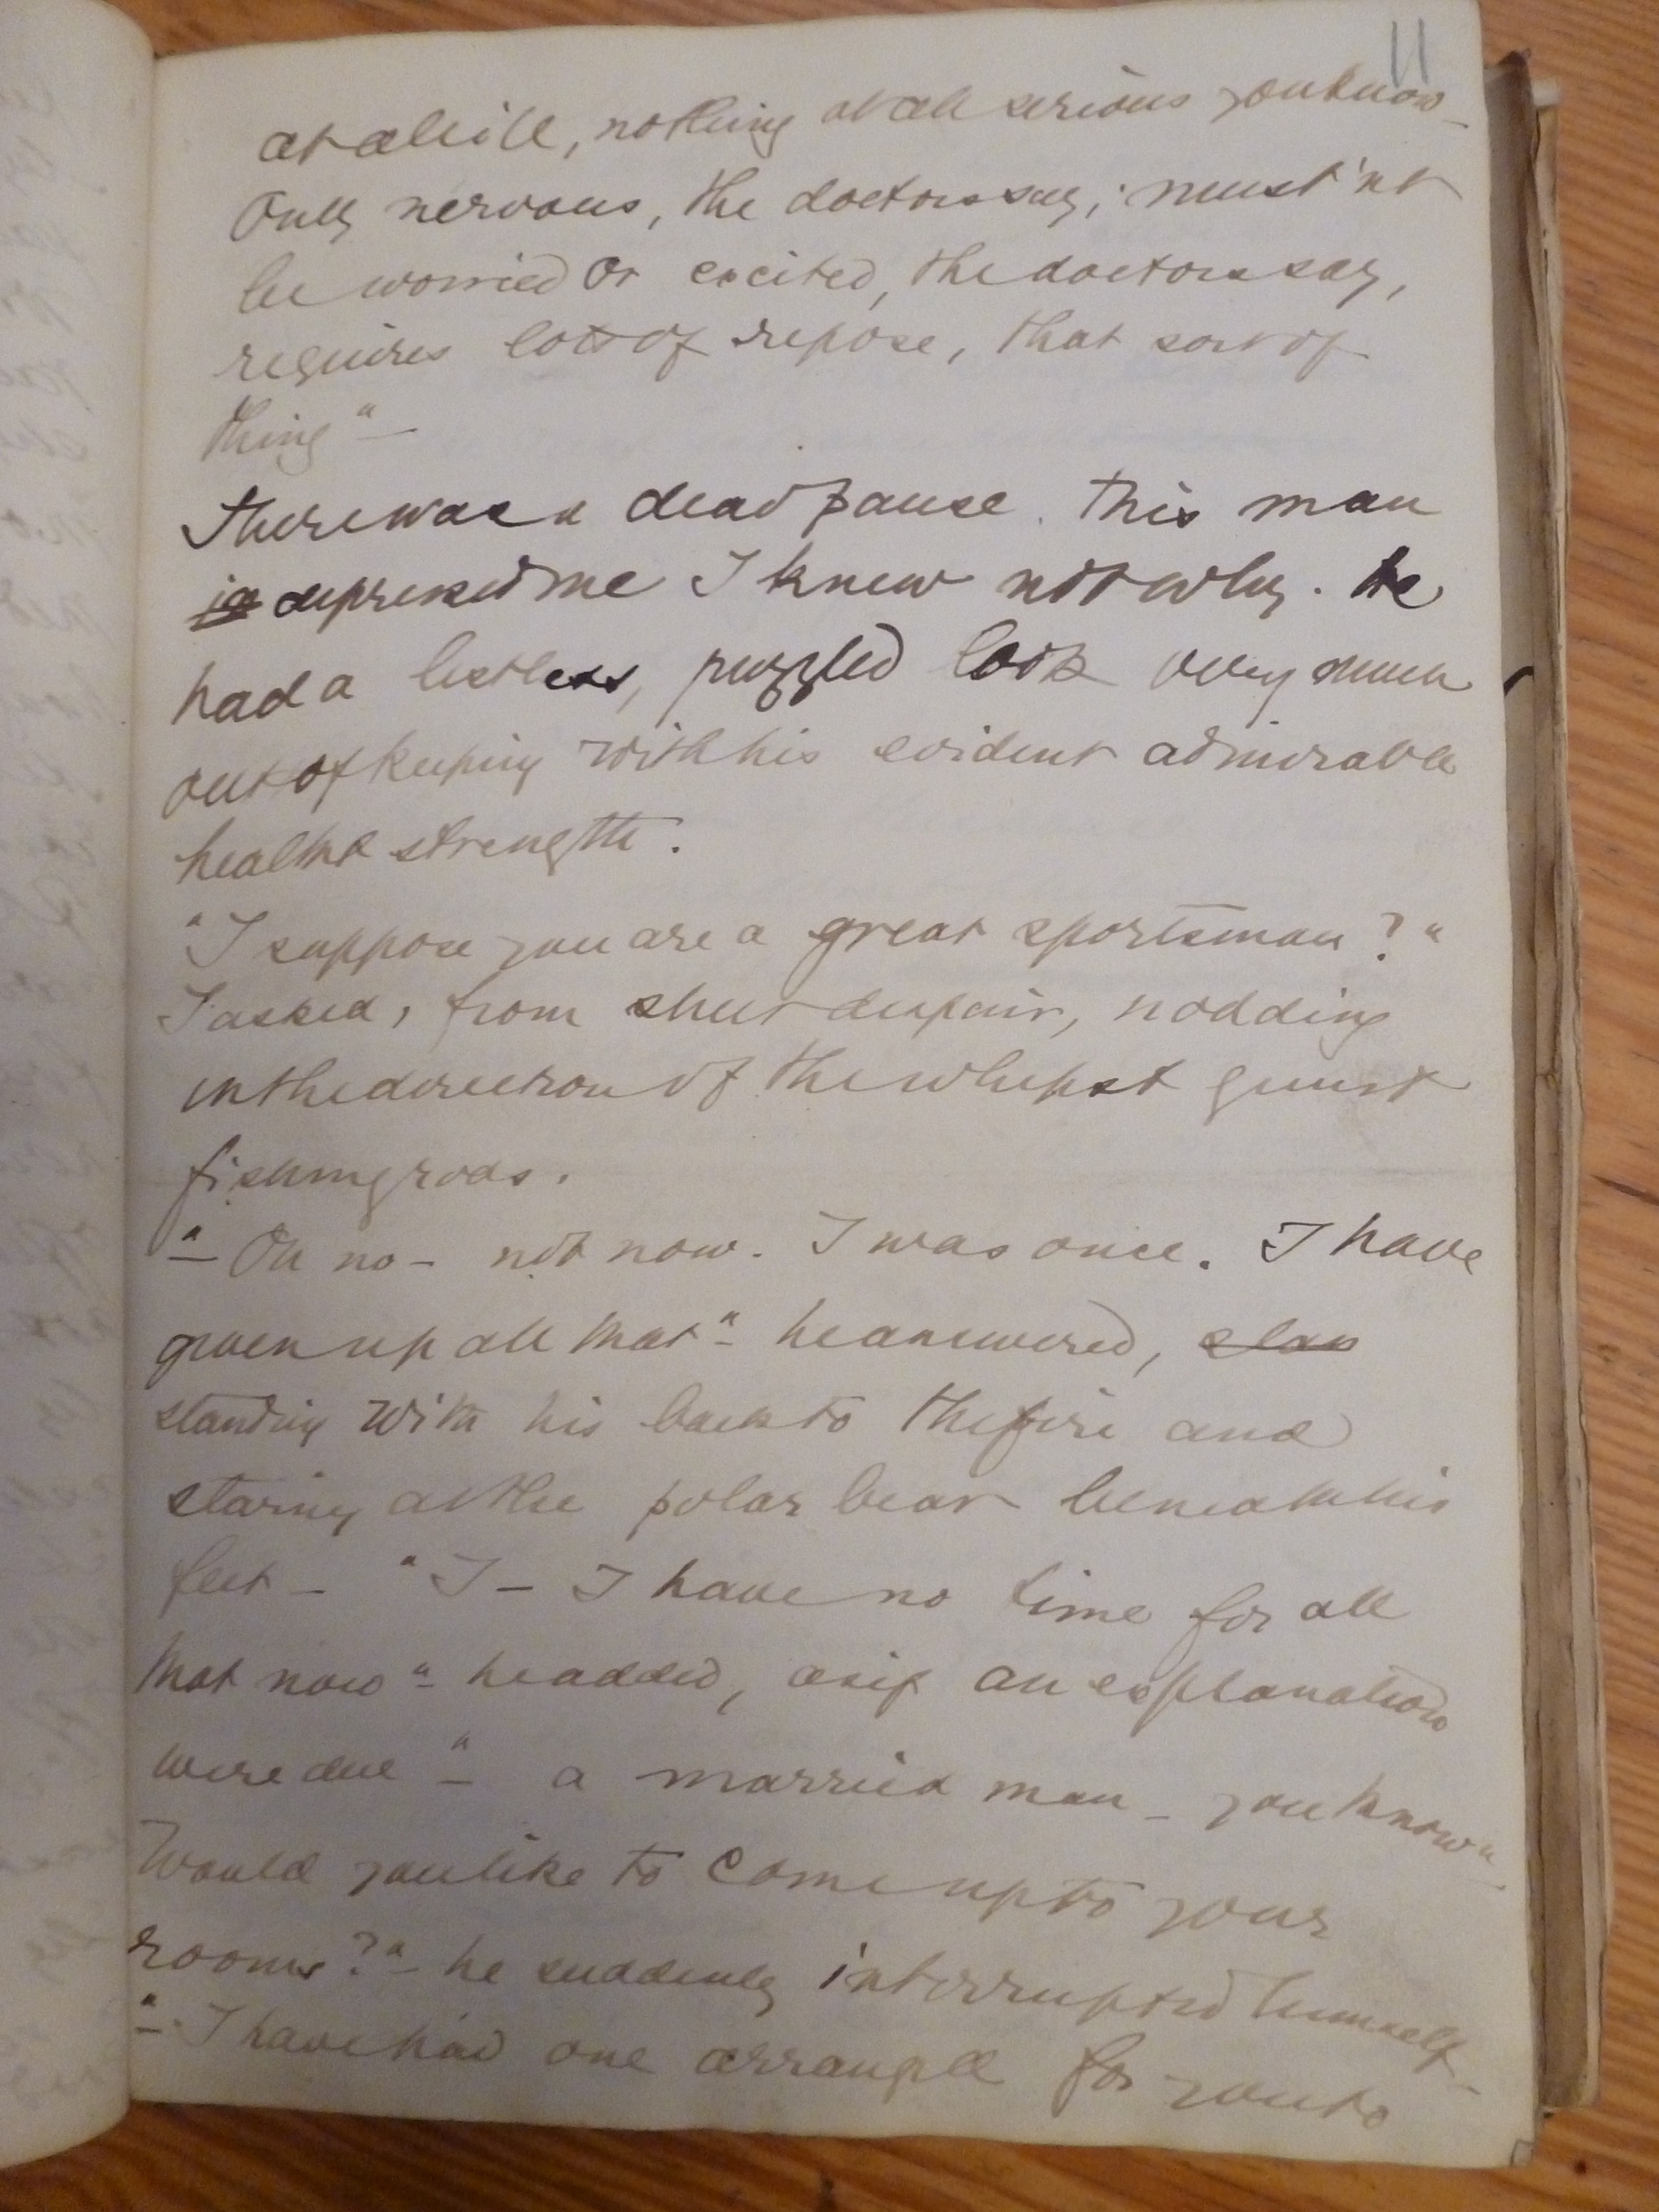 11
at all ill, nothing at all serious you know –
Only nervous, the doctors say; must'nt
be worried or excited, the doctors say,
requires lots of repose, that sort of
thing" –
There was a dead pause. This man
depressed me I knew not why. He
had a listless, puzzled look very much
out of keeping with his evident admirable
health & strength.
"I suppose you are a great sportsman?"
I asked, from sheer despair, nodding
in the direction of the whips & guns &
fishing rods.
"– Oh no – not now. I was once. I have
given up all that" – he answered, stan
standing with his back to the fire and
staring at the polar bear beneath his
feet – "I – I have no time for all
that now" – he added, as if an explanation
were due – "a married man – you know"–
Would you like to come up to your
rooms?" – he suddenly interrupted himself –
"– I have had one arranged for you to